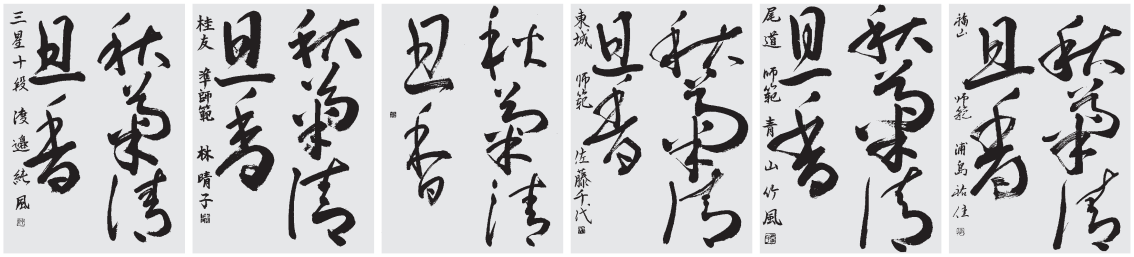 秋菊清
且香
三星十段 渡邉純風
秋菊清
且香
桂友 準師範 林晴子
秋菊清
且香
秋菊清
且香
東城 师範 佐藤千代
秋菊清
且香
尾道 师範 青山竹風
秋菊清
且香
福山 师範 浦島祐佳